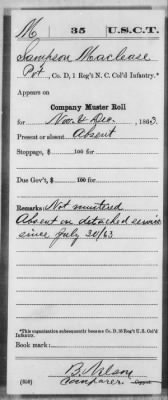 M 35 U.S.C.T.
Sampson Maclease
Pvt., Co. D, 1 Reg't N. C. Col'd Infantry.*
Appears on
Company Muster Roll
for Nov. & Dec., 1863.
Present or absent Absent
Stoppage, $ 100 for
Due Gov't, $ 100 for
Remarks: Not mustered
Absent on detached service
since July 30/63
*This organization subsequently became Co. D, 35 Reg't U. S. Col'd
Infantry.
Book mark:
B. Nelson
(358) Copyist.